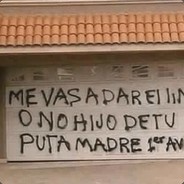 ME VAS A DAR El lIN
O NO HIJO DE TU
PUTA MADRE 1er AV